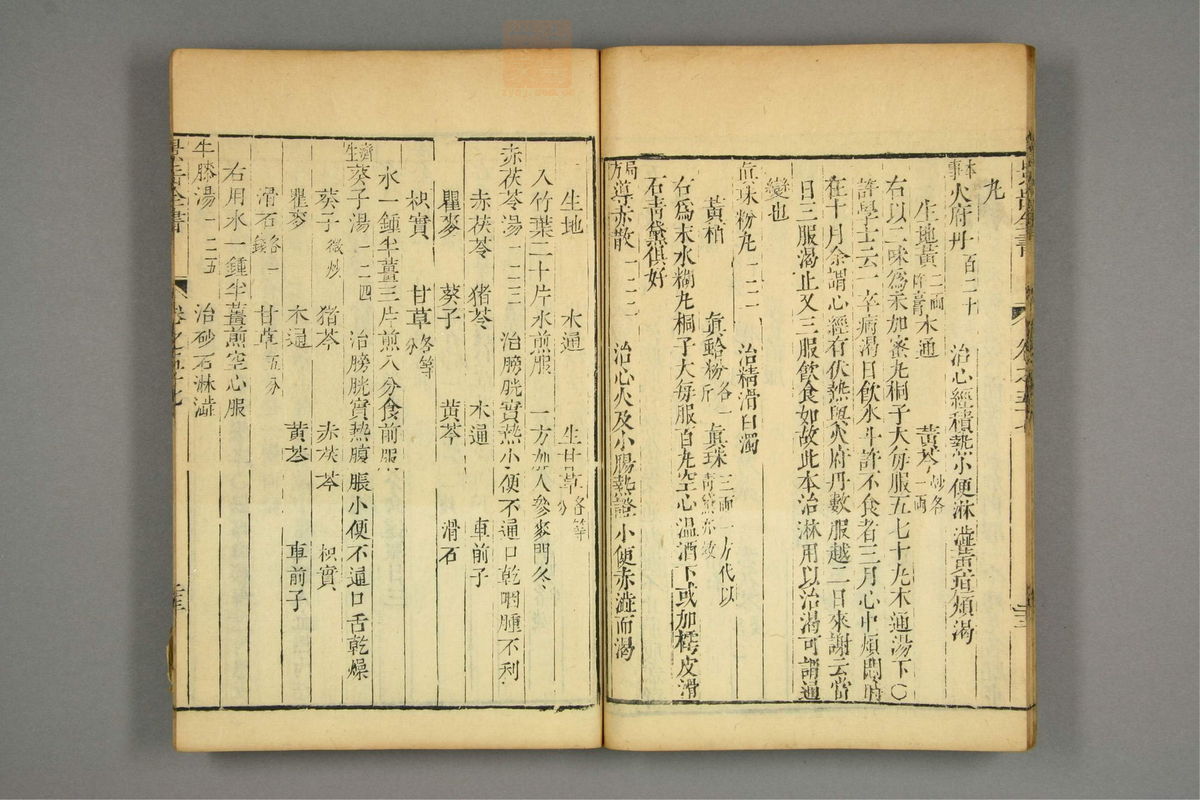 九
本事火府丹一百二十　治心經積熱小便淋澁黃疸煩渴
生地黃二兩杵膏　木通　黃芩炒各一兩
右以二味爲末加蜜九桐子大每服五七十九木通湯下〇
許學士云一卒病渴日飮水斗許不食者三月心中煩悶時
在十月余謂心經有伏熱與火府丹數服越二日來謝云當
日三服渴止又三服飮食如故此本治淋用以治渴可謂通
變也
眞珠粉九一二一　治精滑白濁
黃柏　眞蛤粉各一斤　眞珠三兩一方代以靑黛亦效
右爲末水糊九桐子大每服百九空心溫酒下或加樗皮滑
石靑黛俱好
局方導赤散一二二　治心火及小腸熱證小便赤澁而渴
生地　木通　生甘草各等分
入竹葉二十片水煎服　一方加人參麥門冬
赤茯苓湯一二三　治膀胱實熱小便不通口乾咽腫不利
赤茯苓　猪苓　木通　車前子
瞿麥　葵子　黃芩　滑石
枳實　甘草各等分
水一鍾半薑三片煎八分食前服
濟生葵子湯一二四　治膀胱實熱腹脹小便不通口舌乾燥
葵子微炒　猪苓　赤茯苓　枳實
瞿麥　木通　黃芩　車前子
滑石各一錢　甘草五分
右用水一鍾半薑煎空心服
牛膝湯一二五　治砂石淋澁
景岳全書　卷之五十七